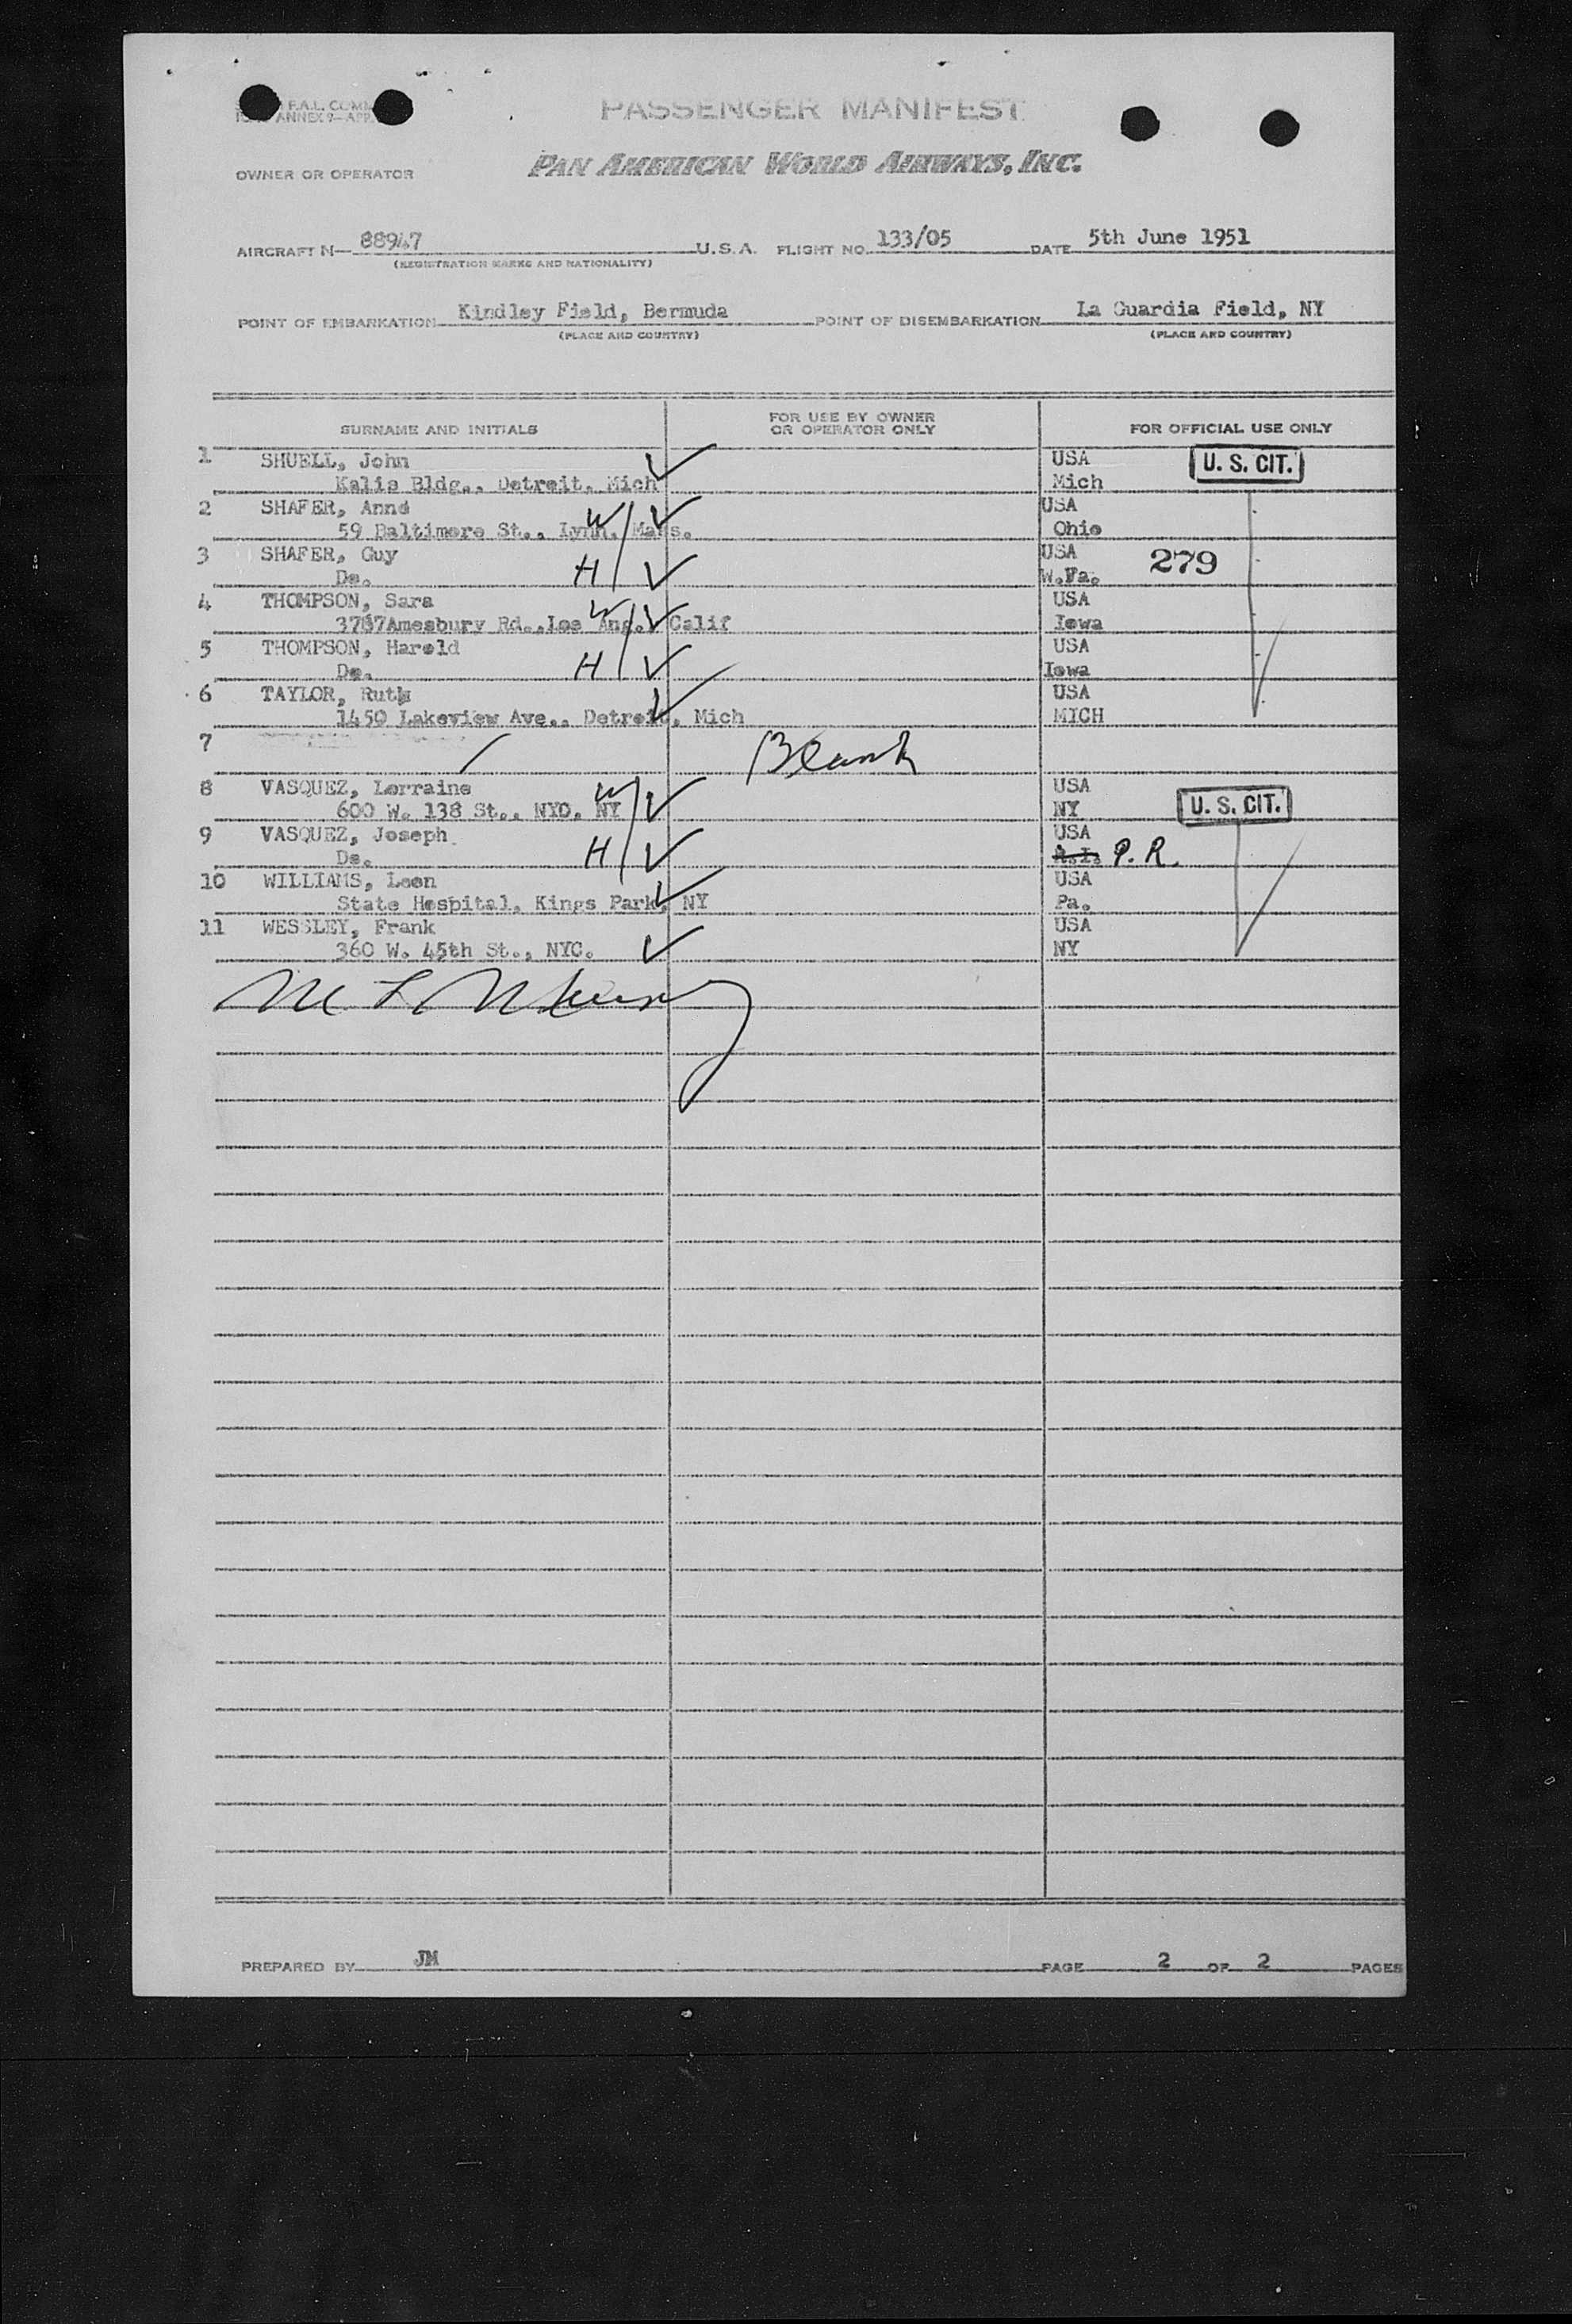 F.A.L. COMM
ANNEX 9—APP.
PASSENGER MANIFEST
OWNER OR OPERATOR
PAN AMERICAN WORLD AIRWAYS, INC.
AIRCRAFT N— 88947 U.S.A. FLIGHT NO. 133/05 DATE 5th June 1951
(REGISTRATION MARKS AND NATIONALITY)
POINT OF EMBARKATION Kindley Field, Bermuda POINT OF DISEMBARKATION La Guardia Field, NY
(PLACE AND COUNTRY) (PLACE AND COUNTRY)
SURNAME AND INITIALS FOR USE BY OWNER OR OPERATOR ONLY FOR OFFICIAL USE ONLY
1 SHUELL, John USA U. S. CIT.
Kalis Bldg., Detroit, Mich Mich
2 SHAFER, Anne USA
59 Baltimore St., Lynn, Mass. W Ohio
3 SHAFER, Guy USA 279
Do. H W.Va.
4 THOMPSON, Sara USA
3787Amesbury Rd.,Los Ang. Calif W Iowa
5 THOMPSON, Harold USA
Do. H Iowa
6 TAYLOR, Ruth USA
1450 Lakeview Ave., Detroit, Mich MICH
7 Blank
8 VASQUEZ, Lorraine W USA
600 W. 138 St., NYC, NY NY U. S. CIT.
9 VASQUEZ, Joseph USA
Do. H R.I. P.R.
10 WILLIAMS, Leon USA
State Hospital, Kings Park, NY Pa.
11 WESSLEY, Frank USA
360 W. 45th St., NYC. NY
PREPARED BY JM PAGE 2 OF 2 PAGES